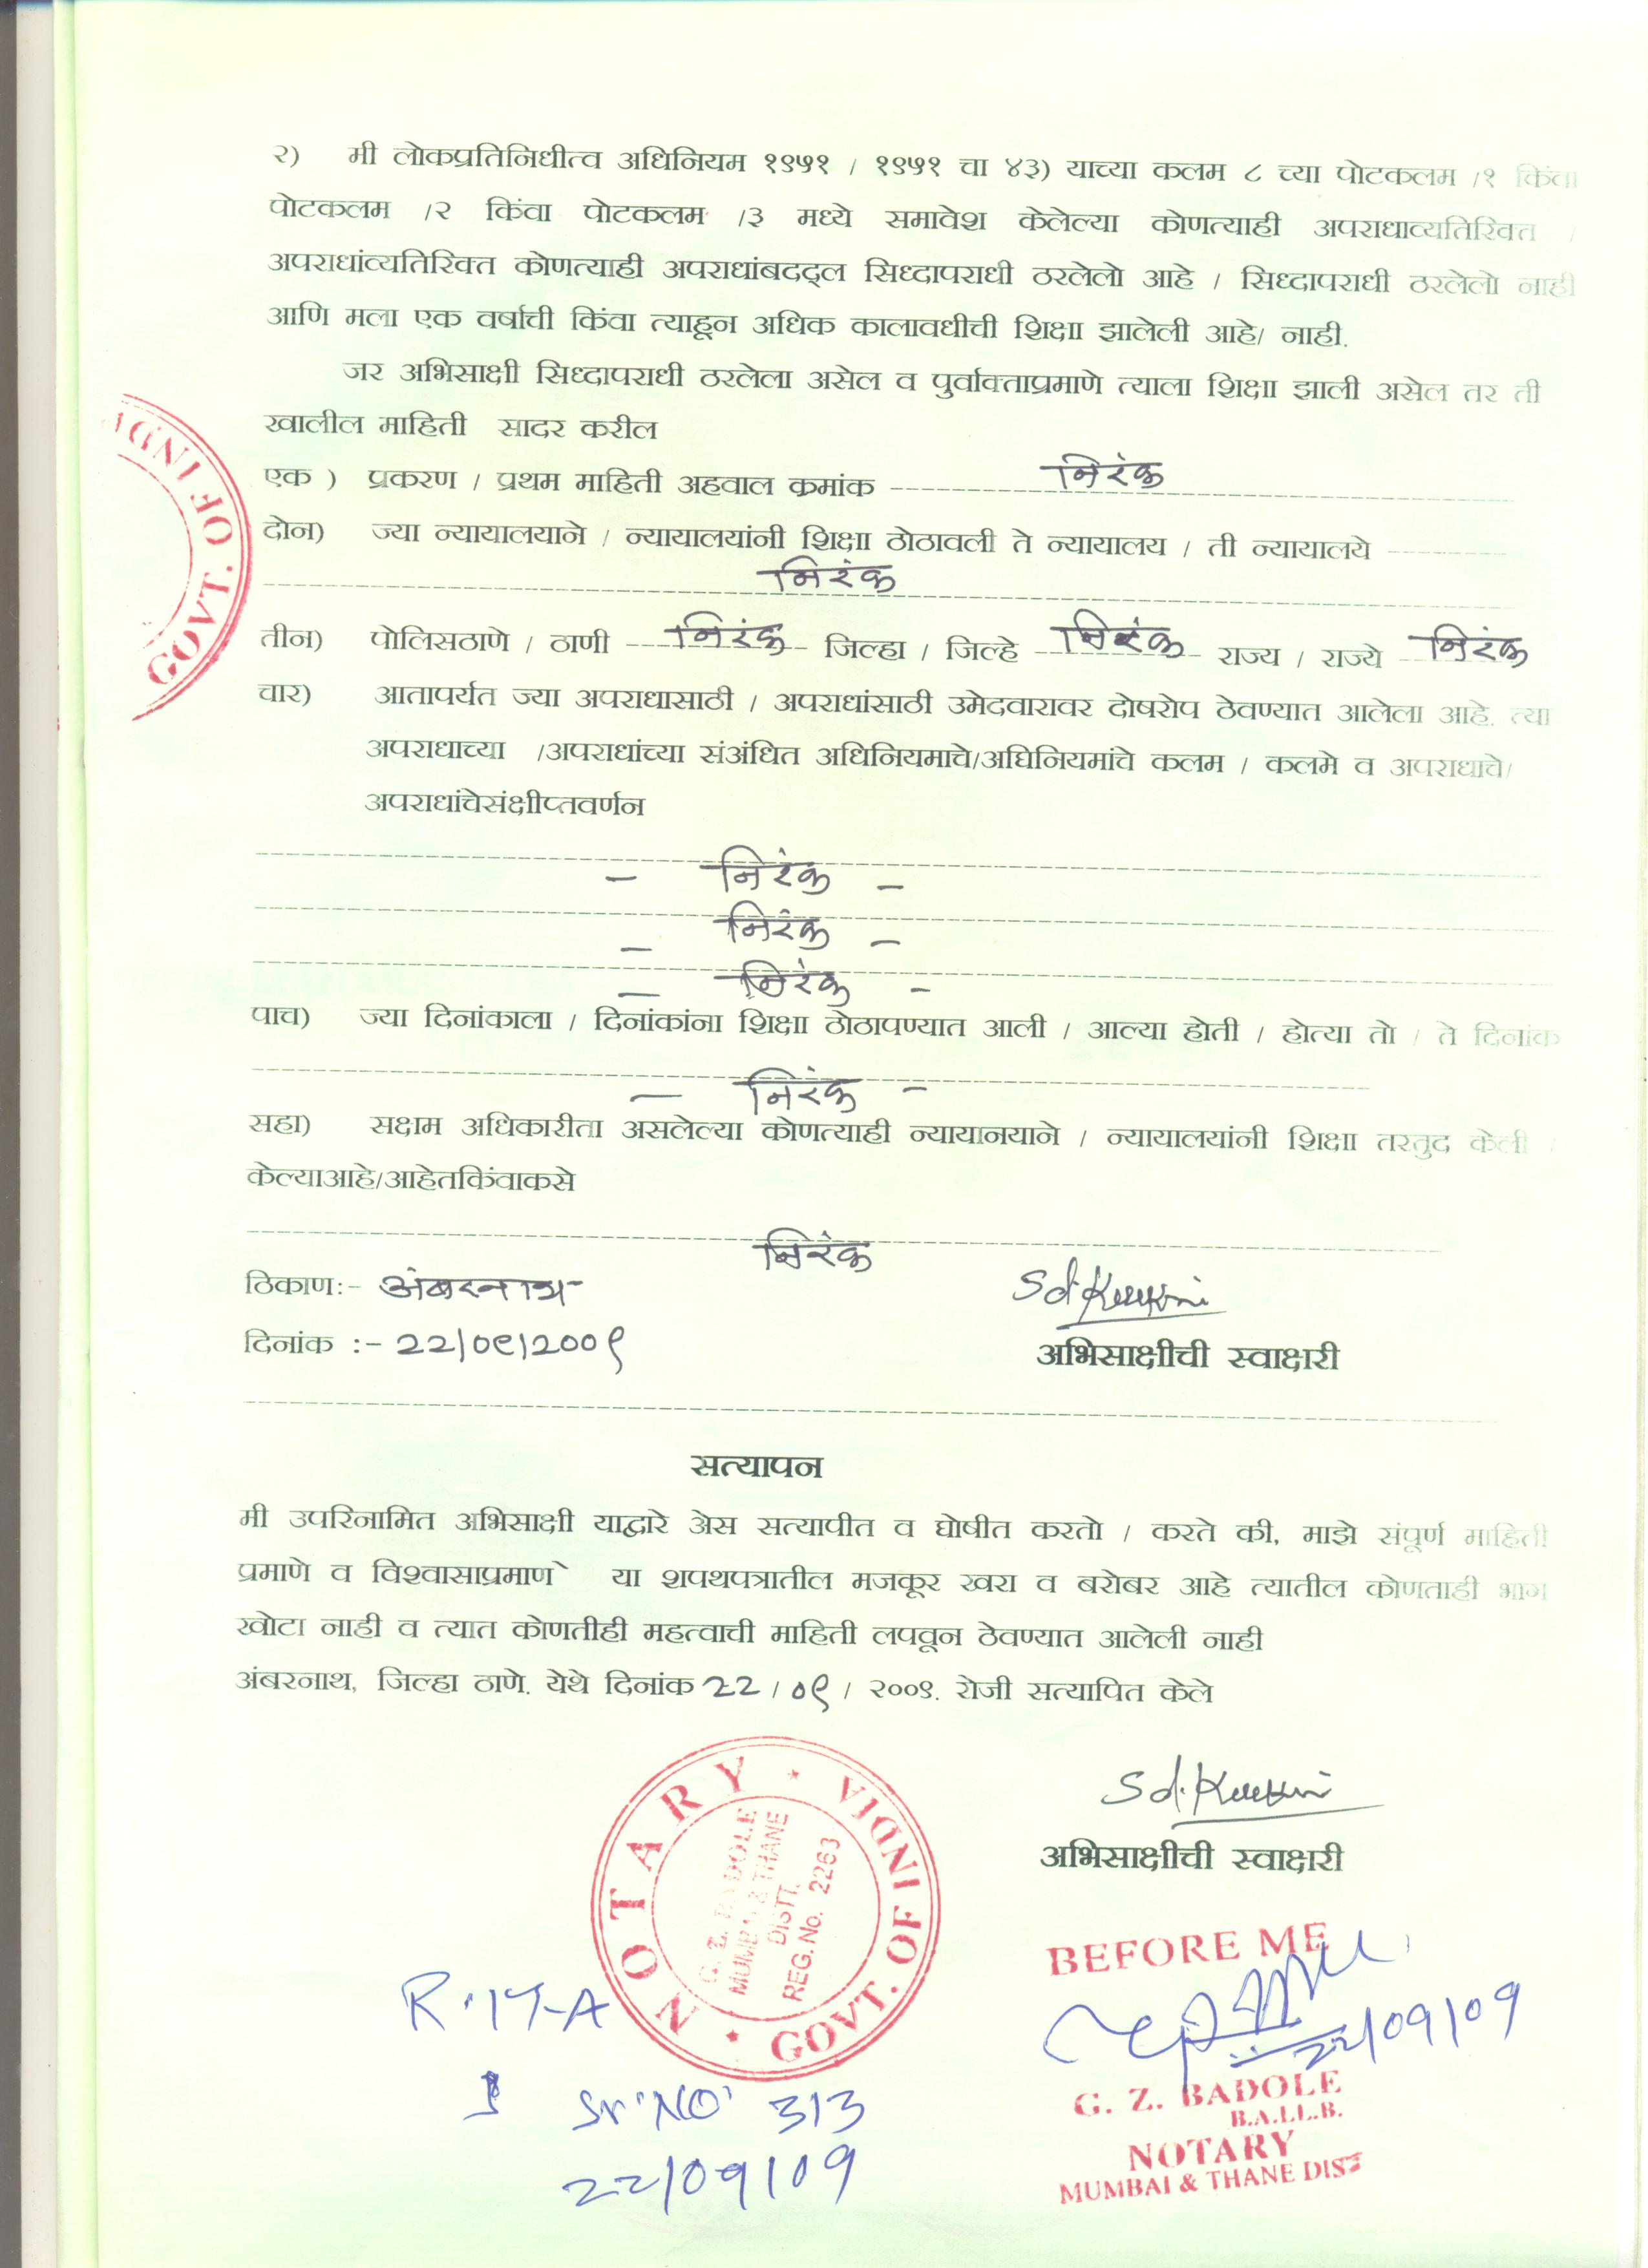 २) मी लोकप्रतिनिधीत्व अधिनियम १९५१ / १९५१ चा ४३) याच्या कलम ८ च्या पोटकलम /१ किंवा
पोटकलम /२ किंवा पोटकलम /३ मध्ये समावेश केलेल्या कोणत्याही अपराधाव्यतिरिक्त /
अपराधांव्यतिरिक्त कोणत्याही अपराधांबददल सिध्दापराधी ठरलेलो आहे / सिध्दापराधी ठरलेलो नाही
आणि मला एक वर्षाची किंवा त्याहून अधिक कालावधीची शिक्षा झालेली आहे/ नाही.
जर अभिसाक्षी सिध्दापराधी ठरलेला असेल व पुर्वाक्ताप्रमाणे त्याला शिक्षा झाली असेल तर ती
खालील माहिती सादर करील
एक ) प्रकरण / प्रथम माहिती अहवाल क्रमांक निरंक
दोन) ज्या न्यायालयाने / न्यायालयांनी शिक्षा ठोठावली ते न्यायालय / ती न्यायालये
निरंक
तीन) पोलिसठाणे / ठाणी निरंक जिल्हा / जिल्हे निरंक राज्य / राज्ये निरंक
चार) आतापर्यत ज्या अपराधासाठी / अपराधांसाठी उमेदवारावर दोषरोप ठेवण्यात आलेला आहे. त्या
अपराधाच्या /अपराधांच्या संअंधित अधिनियमाचे/अघिनियमांचे कलम / कलमे व अपराधाचे/
अपराधांचेसंक्षीप्तवर्णन
- निरंक -
- निरंक -
- निरंक -
पाच) ज्या दिनांकाला / दिनांकांना शिक्षा ठोठापण्यात आली / आल्या होती / होत्या तो / ते दिनांक
- निरंक -
सहा) सक्षम अधिकारीता असलेल्या कोणत्याही न्यायानयाने / न्यायालयांनी शिक्षा तरतुद केली /
केल्याआहे/आहेतकिंवाकसे
निरंक
ठिकाण:- अंबरनाथ
दिनांक :- 22/09/2009
अभिसाक्षीची स्वाक्षरी
सत्यापन
मी उपरिनामित अभिसाक्षी याद्वारे अेस सत्यापीत व घोषीत करतो / करते की, माझे संपूर्ण माहिती
प्रमाणे व विश्वासाप्रमाणे या शपथपत्रातील मजकूर खरा व बरोबर आहे त्यातील कोणताही भाग
खोटा नाही व त्यात कोणतीही महत्वाची माहिती लपवून ठेवण्यात आलेली नाही
अंबरनाथ, जिल्हा ठाणे. येथे दिनांक 22 / 09 / २००९. रोजी सत्यापित केले
अभिसाक्षीची स्वाक्षरी
GOVT. OF INDIA
NOTARY
GOVT. OF INDIA
G. Z. BADOLE
MUMBAI & THANE
DISTT.
REG. No. 2263
BEFORE ME
22/09/09
G. Z. BADOLE
B.A.LL.B.
NOTARY
MUMBAI & THANE DIST
Sr. NO. 313
22/09/09